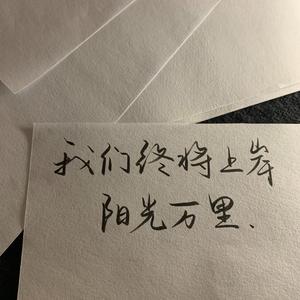 我们终将上岸
阳光万里、